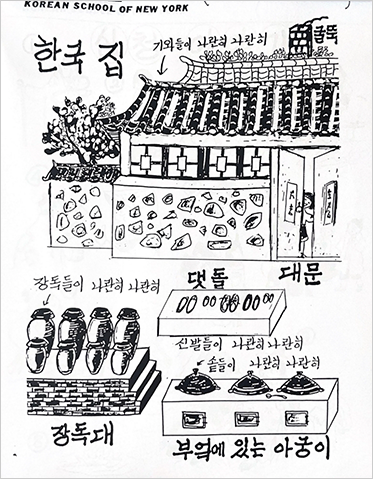 KOREAN SCHOOL OF NEW YORK
한국 집
기와들이 나란히 나란히
굴뚝
장독들이 나란히 나란히
댓돌
대문
신발들이 나란히 나란히
솥들이 나란히 나란히
장독대
부엌에 있는 아궁이